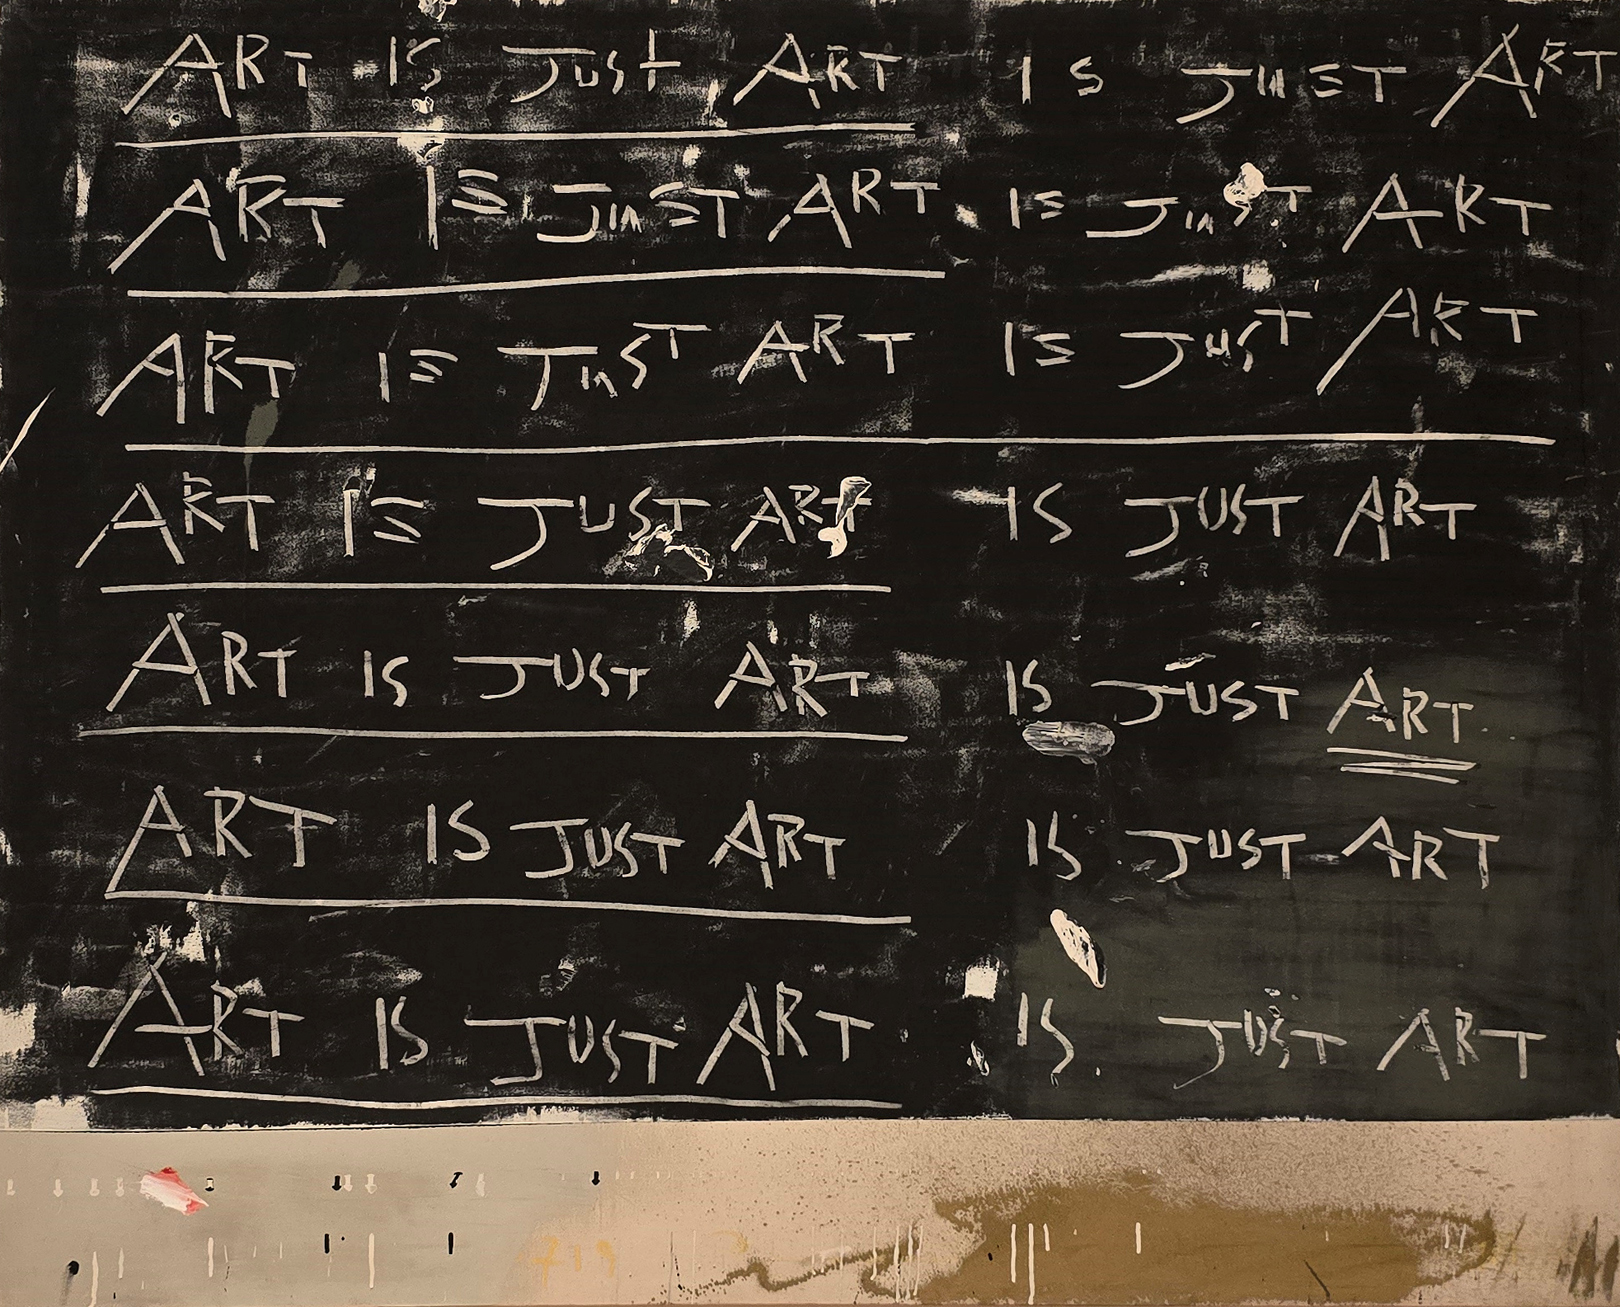 ART IS JUST ART IS JUST ART
ART IS JUST ART IS JUST ART
ART IS JUST ART IS JUST ART
ART IS JUST ART IS JUST ART
ART IS JUST ART IS JUST ART
ART IS JUST ART IS JUST ART
ART IS JUST ART IS JUST ART